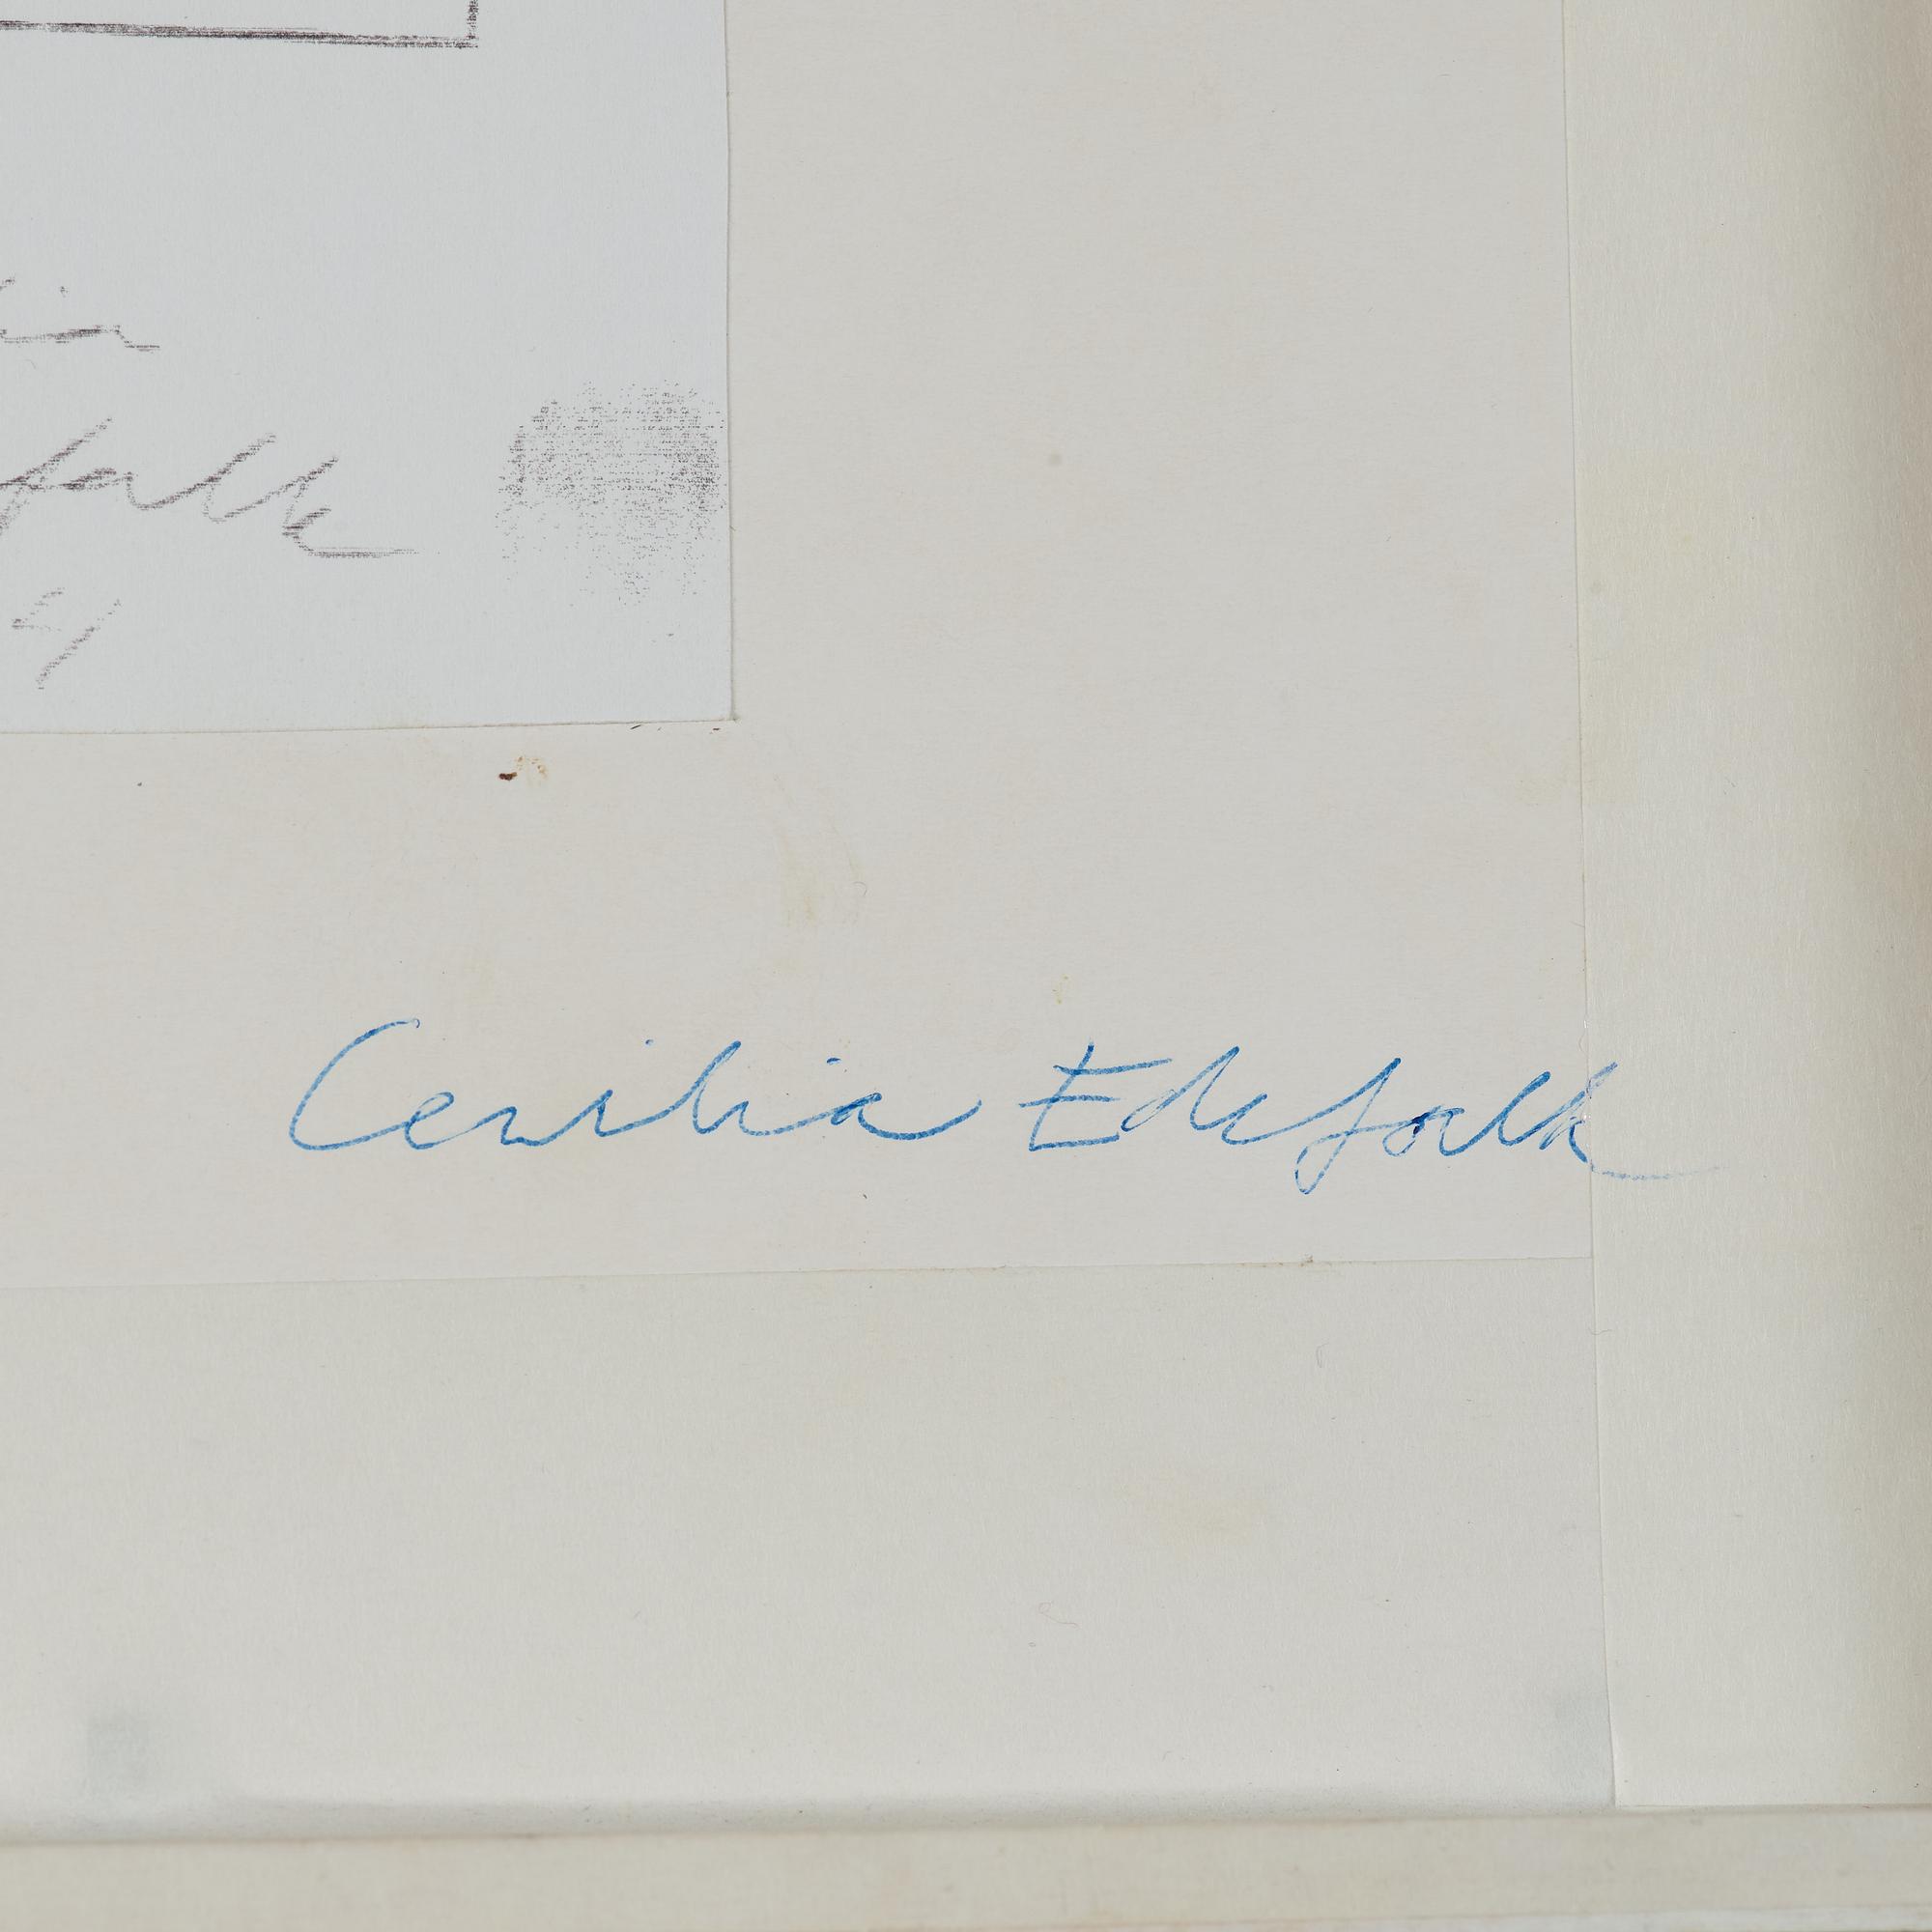 ia
falk
91
Cecilia Edefalk